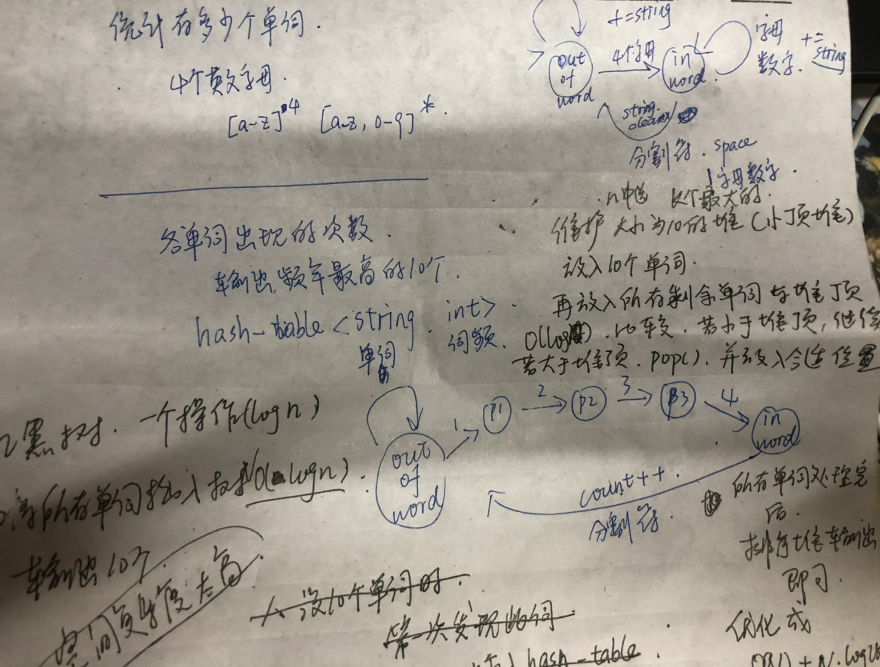 统计有多少个单词.
4个英文字母.
[a-z]*4 [a-z, 0-9]*
+= string
out of word
4个字母
in word
字母
数字. += string
string.clear()
分割符. space
字母数字.
各单词出现的次数.
输出频率最高的10个.
hash-table <string, int>.
单词 词频.
n中选 K个最大的.
维护大小为10的堆(小顶堆)
放入10个单词.
再放入所有剩余单词与堆顶
比较. 若小于堆顶, 继续
若大于堆顶. pop(). 并放入合适位置
黑树. 一个操作(logn)
所有单词插入
输出10个.
空间复杂度太高
out of word
1 P1 2 P2 3 P3 4
in word
count++
分割符.
所有单词处理完
后.
排序堆输出
即可.
没10个单词时.
第一次发现的词
hash-table
优化成